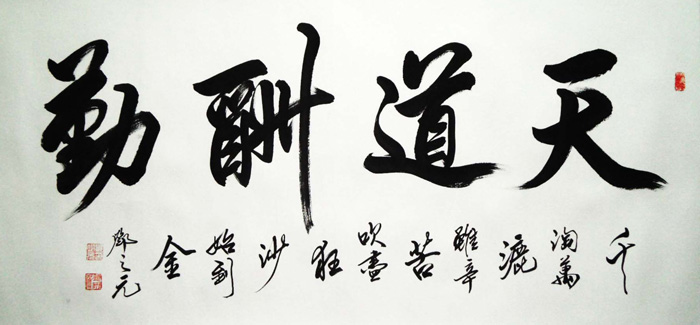 天道酬勤
千淘萬漉雖辛苦吹盡狂沙始到金
之元